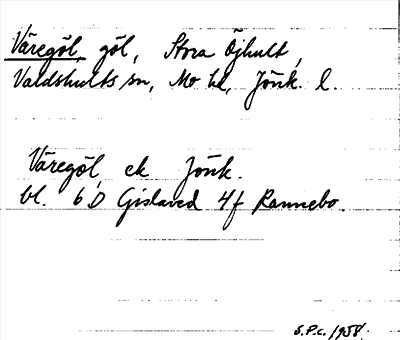 Väregöl, göl, Stora Öjhult,
Valdshults sn, Mo hd, Jönk. l.
Väregöl ek Jönk.
bl. 6D Gislaved 4f Rannebo.
S.P.C. 1958.